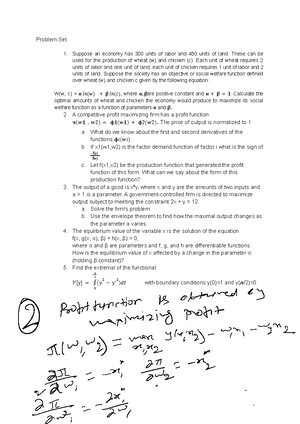 Problem Set
1. Suppose an economy has 300 units of labor and 450 units of land. These can be
used for the production of wheat (w) and chicken (c). Each unit of wheat requires 2
units of labor and one unit of land; each unit of chicken requires 1 unit of labor and 2
units of land. Suppose the society has an objective or social welfare function defined
over wheat (w) and chicken c given by the following equation:
W(w, c) = α ln(w) + β ln(c), where α,β are positive constant and α + β = 1. Calculate the
optimal amounts of wheat and chicken the economy would produce to maximize its social
welfare function as a function of parameters α and β.
2. A competitive profit maximizing firm has a profit function
π(w1 , w2) = ϕ1(w1) + ϕ2(w2). The price of output is normalized to 1
a. What do we know about the first and second derivatives of the
functions ϕi(wi)
b. If xi(w1,w2) is the factor demand function of factor i what is the sign of
∂xi/∂wj
c. Let f(x1,x2) be the production function that generated the profit
function of this form. What can we say about the form of this
production function?
3. The output of a good is x^a y, where x and y are the amounts of two inputs and
a > 1 is a parameter. A government-controlled firm is directed to maximize
output subject to meeting the constraint 2x + y = 12.
a. Solve the firm's problem.
b. Use the envelope theorem to find how the maximal output changes as
the parameter a varies.
4. The equilibrium value of the variable x is the solution of the equation
f(x, g(x, α), β) + h(x, β) = 0,
where α and β are parameters and f, g, and h are differentiable functions.
How is the equilibrium value of x affected by a change in the parameter α
(holding β constant)?
5. Find the extremal of the functional
with boundary conditions y(0)=1 and y(π/2)=0
② Profit function is obtained by
maximizing profit
π(w₁, w₂) = max y(x₁,x₂) - w₁x₁ - w₂x₂
x₁,x₂
∂π/∂w₁ = -x₁* ∂π/∂w₂ = -x₂*
∂²π/∂w₁² = -∂x₁*/∂w₁